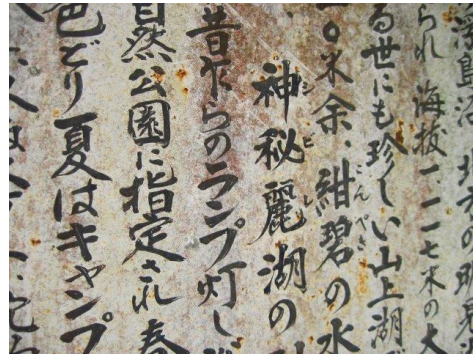 られ 海抜一一一七米の大
る世にも珍しい山上湖
〇米余、紺碧の水
神秘麗湖の
昔乍らのランプ灯し
自然公園に指定され 春
色どり夏はキャンプ